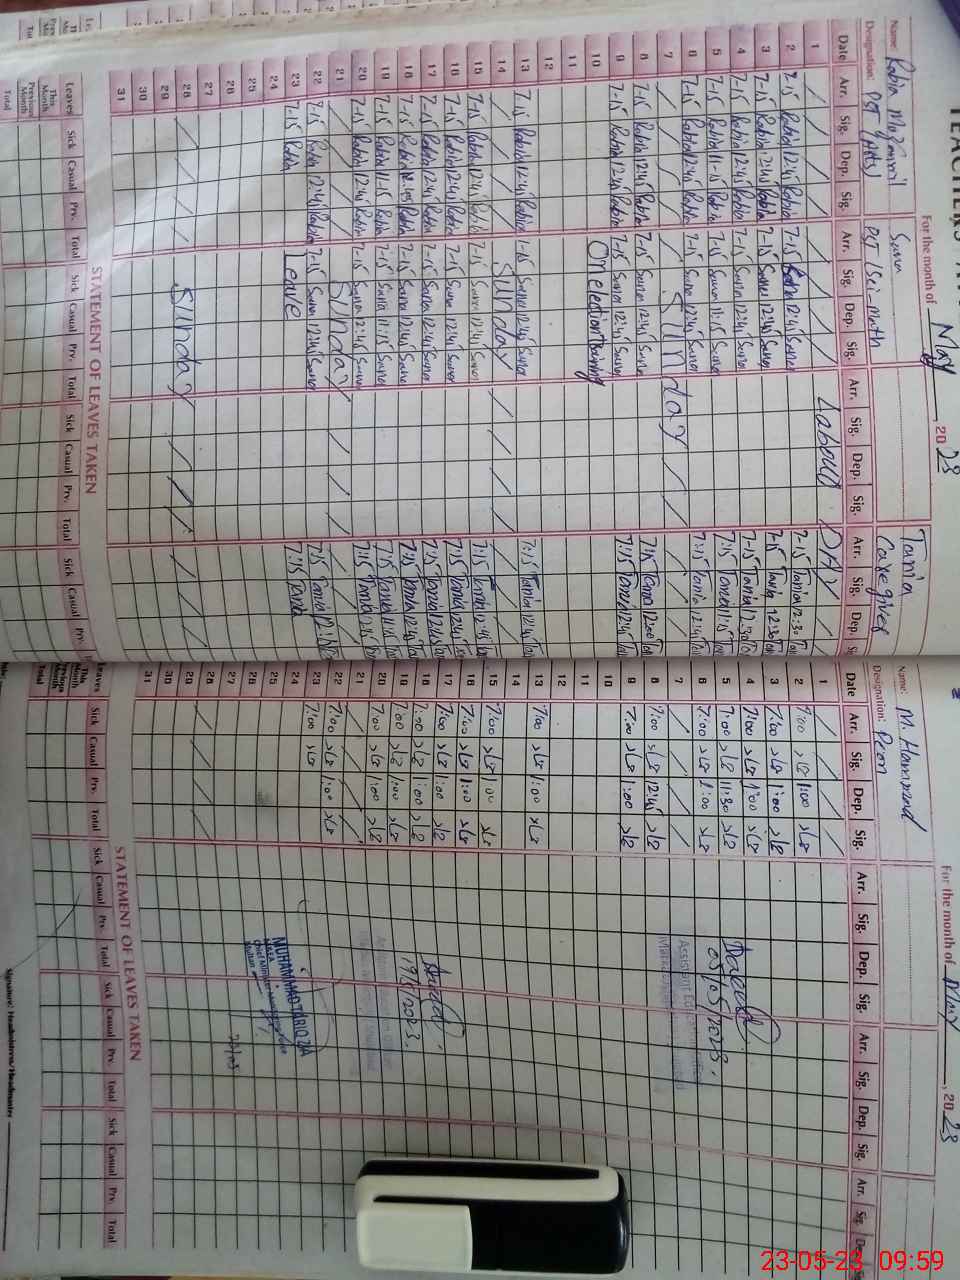 TEACHERS
For the month of May, 2023
Name: Rabia
Designation: PST (Arts)
Sana
PST (Sci-Math
Tania
Caregiver
Date Arr. Sig. Dep. Sig. Arr. Sig. Dep. Sig. Arr. Sig. Dep. Sig. Arr. Sig. Dep.
1 Labour DAY
2 7-15 Rabia 12:45 Rabia 7-15 Sana 12:45 Sana 7-15 Tania 12:30
3 7-15 Rabia 12:45 Rabia 7-15 Sana 12:45 Sana 7-15 Tania 12:30
4 7-15 Rabia 12:45 Rabia 7-15 Sana 12:45 Sana 7-15 Tania 12:30
5 7-15 Rabia 11-15 Rabia 7-15 Sana 11:15 Sana 7:15 Tania 11:15
6 7-15 Rabia 12:45 Rabia 7-15 Sana 12:45 Sana 7:15 Tania 12:45
7 Sunday
8 7-15 Rabia 12:45 Rabia 7-15 Sana 12:45 Sana 7:15 Tania 12:00
9 7-15 Rabia 12:45 Rabia 7-15 Sana 12:45 Sana 7:15 Tania 12:45
10 On election Training
11
12
13 7-15 Rabia 12:45 Rabia 7-15 Sana 12:45 Sana 7:15 Tania 12:45
14 Sunday
15 7-15 Rabia 12:45 Rabia 7-15 Sana 12:45 Sana 7:15 Tania 12:45
16 7-15 Rabia 12:45 Rabia 7-15 Sana 12:45 Sana 7:15 Tania 12:45
17 7-15 Rabia 12:45 Rabia 7-15 Sana 12:45 Sana 7:15 Tania 12:45
18 7-15 Rabia 12:45 Rabia 7-15 Sana 12:45 Sana 7:15 Tania 12:45
19 7-15 Rabia 11-15 Rabia 7-15 Sana 11:15 Sana 7:15 Tania 11:15
20 7-15 Rabia 12:45 Rabia 7-15 Sana 12:45 Sana 7:15 Tania
21 Sunday
22 7-15 Rabia 12:45 Rabia 7-15 Sana 12:45 Sana 7:15 Tania 12:45
23 7-15 Rabia Leave 7:15 Tania
24
25
26
27
28 Sunday
29
30
31
STATEMENT OF LEAVES TAKEN
Leaves Sick Casual Prv. Total Sick Casual Prv. Total Sick Casual Prv. Total Sick Casual Prv.
This Month
Previous Month
Total
For the month of May, 2023
Name: M. Hammad
Designation: Peon
Date Arr. Sig. Dep. Sig. Arr. Sig. Dep. Sig. Arr. Sig. Dep. Sig. Arr. Sig. Dep.
1
2 7:00 1:00
3 7:00 1:00
4 7:00 1:00
5 7:00 11:30
6 7:00 1:00
7
8 7:00 12:45
9 7:00 1:00
10
11
12
13 7:00 1:00
14
15 7:00 1:00
16 7:00 1:00
17 7:00 1:00
18 7:00 1:00
19 7:00 1:00
20 7:00 1:00
21
22 7:00 1:00
23 7:00
24
25
26
27
28
29
30
31
05/05/2023.
19/5/2023.
MUHAMMAD TARIQ ZIA
STATEMENT OF LEAVES TAKEN
Leaves Sick Casual Prv. Total Sick Casual Prv. Total Sick Casual Prv. Total Sick Casual Prv. Total
This Month
Previous Month
Total
Signature: Headmistress/Headmaster
23-05-23 09:59